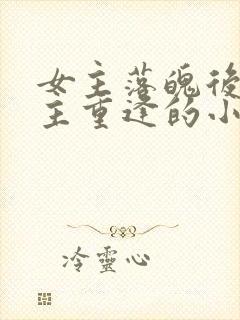 女主落魄後
主重逢的小
冷靈心